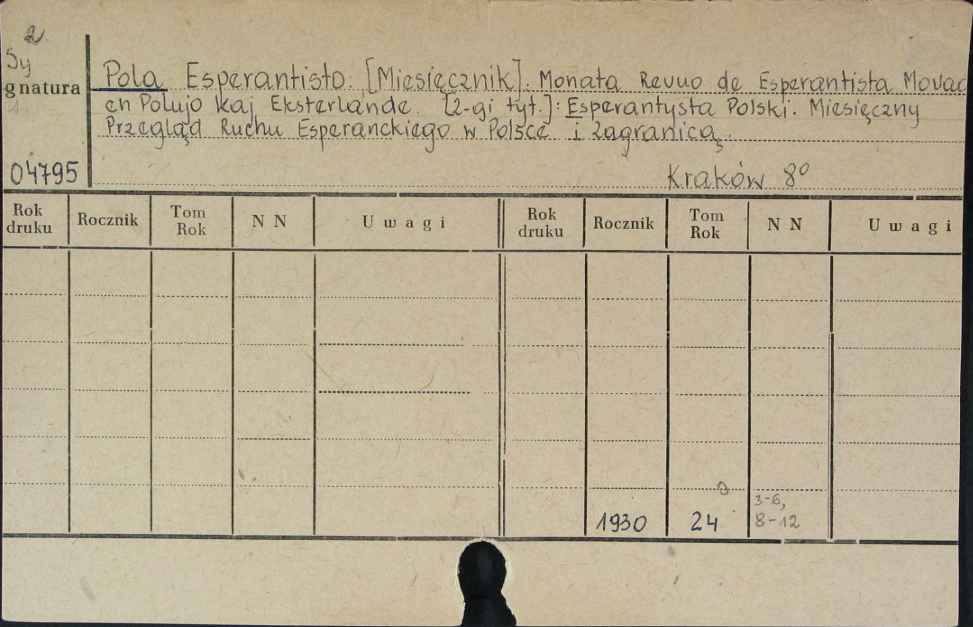 2
Sygnatura
04795
Pola Esperantisto. [Miesięcznik]. Monata Revuo de Esperantista Movad
en Polujo kaj Eksterlande. [2-gi tyt.]: Esperantysta Polski. Miesięczny
Przegląd Ruchu Esperanckiego w Polsce i zagranicą.
Kraków 8°
Rok druku Rocznik Tom Rok N N Uwagi Rok druku Rocznik Tom Rok N N Uwagi
1930 24 3-6, 8-12